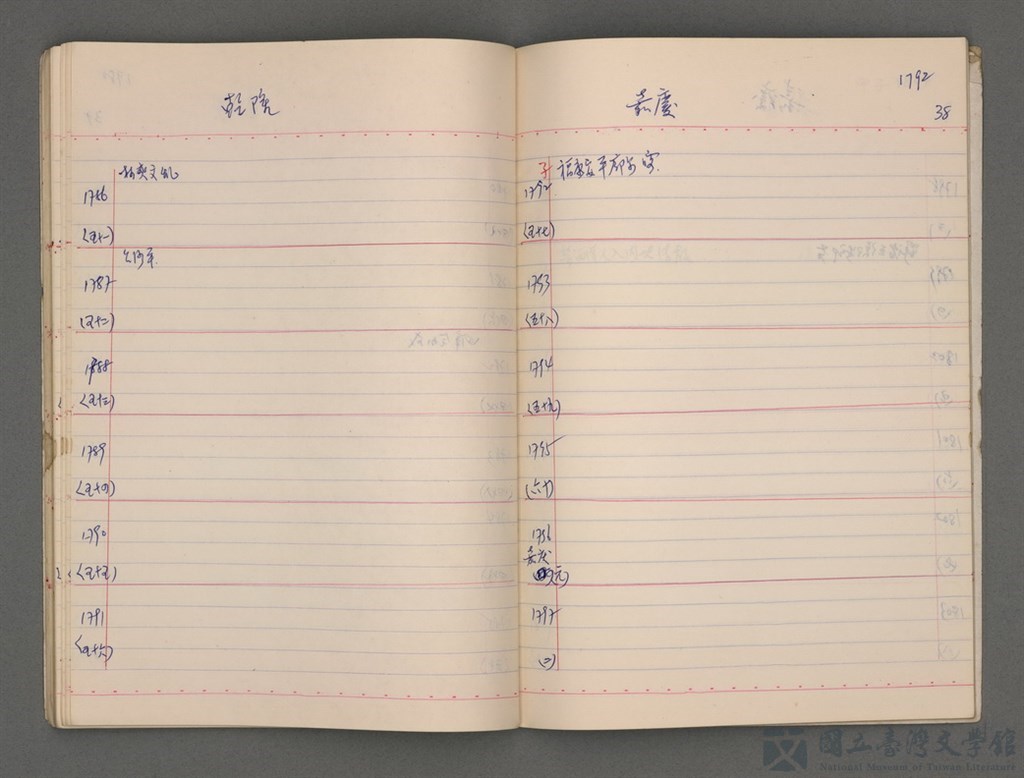 乾隆
1786
(五十一)
1787
(五十二)
1788
(五十三)
1789
(五十四)
1790
(五十五)
1791
(五十六)
嘉慶
1792
38
子
1792
(五十七)
1793
(五十八)
1794
(五十九)
1795
(六十)
1796
嘉慶
(元)
1797
(二)
國立臺灣文學館
National Museum of Taiwan Literature